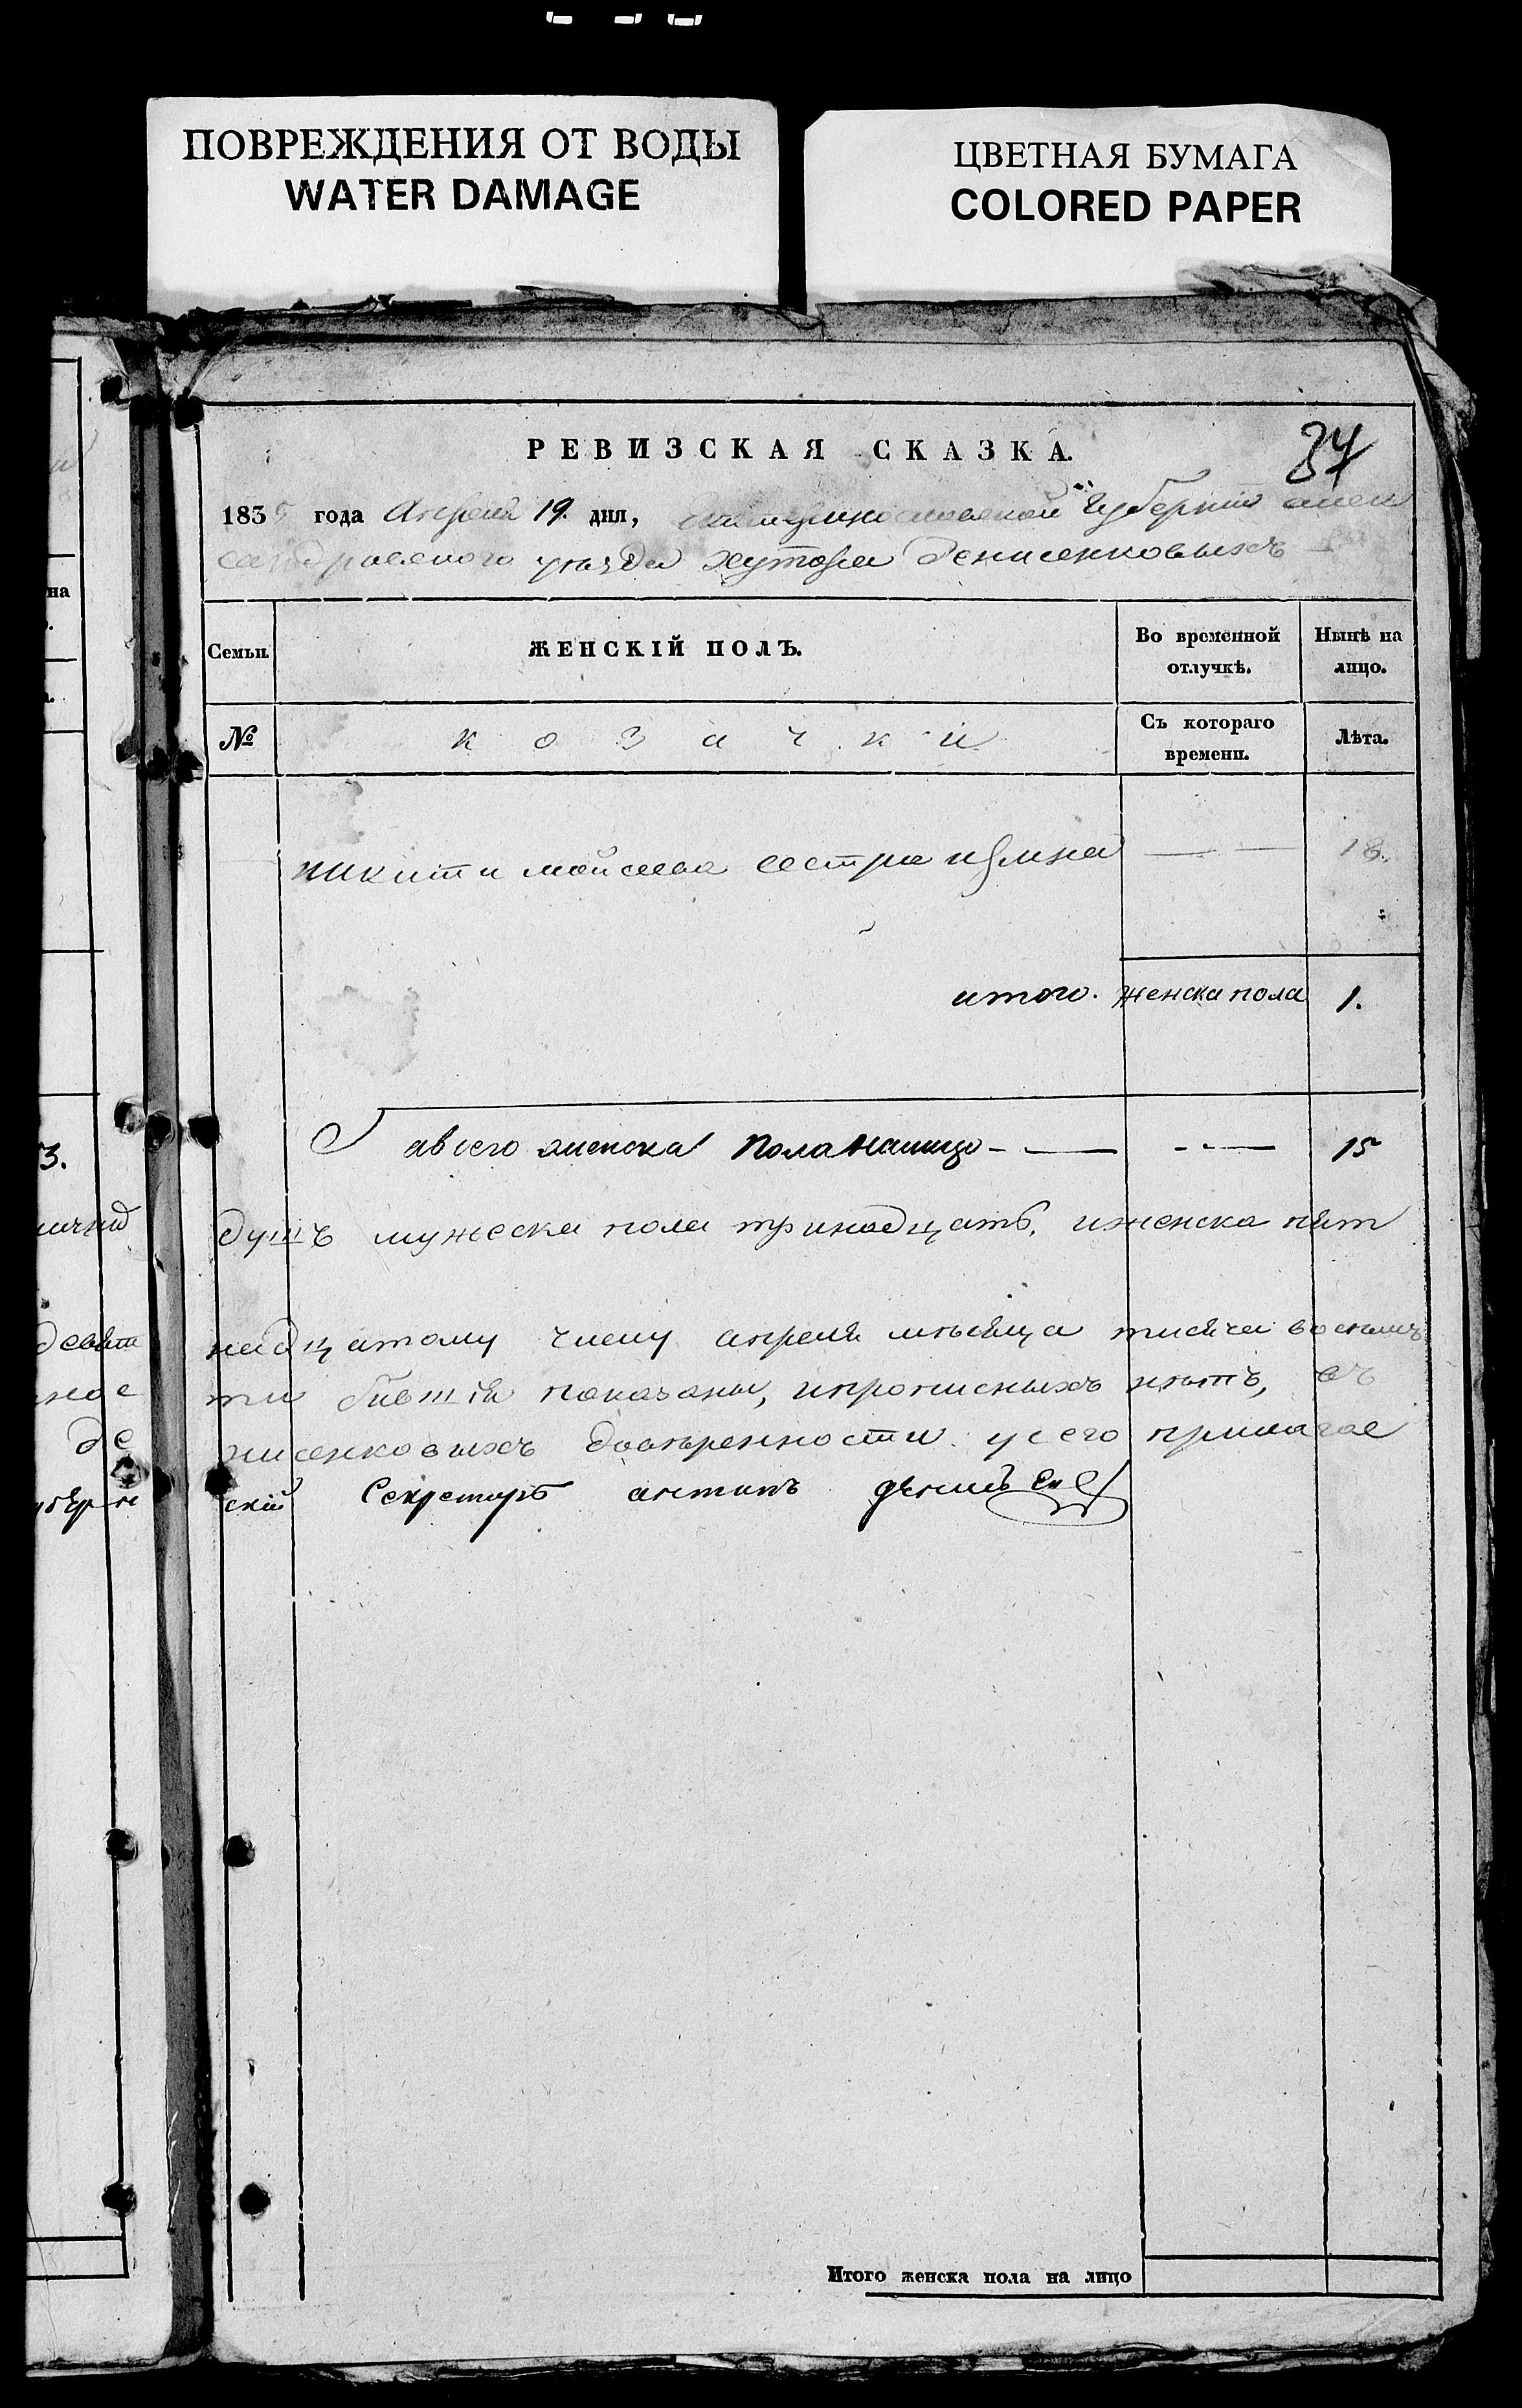 ПОВРЕЖДЕНИЯ ОТ ВОДЫ
WATER DAMAGE
ЦВЕТНАЯ БУМАГА
COLORED PAPER
РЕВИЗСКАЯ СКАЗКА.
37
1835 года Апреля 19. дня, Екатеринославской Губернии алек
сандровского уѣзда хутора денисенковыхъ
Семьи
ЖЕНСКІЙ ПОЛЪ.
Во временной отлучкѣ.
Нынѣ на лицо.
№
козачки
Съ котораго времени.
Лѣта.
никити мойсеева сестра 18.
итого. женска пола 1.
а всего женска пола налицо 15
душъ мужеска пола тринадцать, иженска пят
надцатому числу апреля мѣсяца тисяча восемъ
ти бившія показаны, ипрописныхъ нѣтъ, въ
нисенковыхъ довѣренности у сего прилагае
скій Секретарь антипъ
3.
девят
ное
де
Итого женска пола на лицо